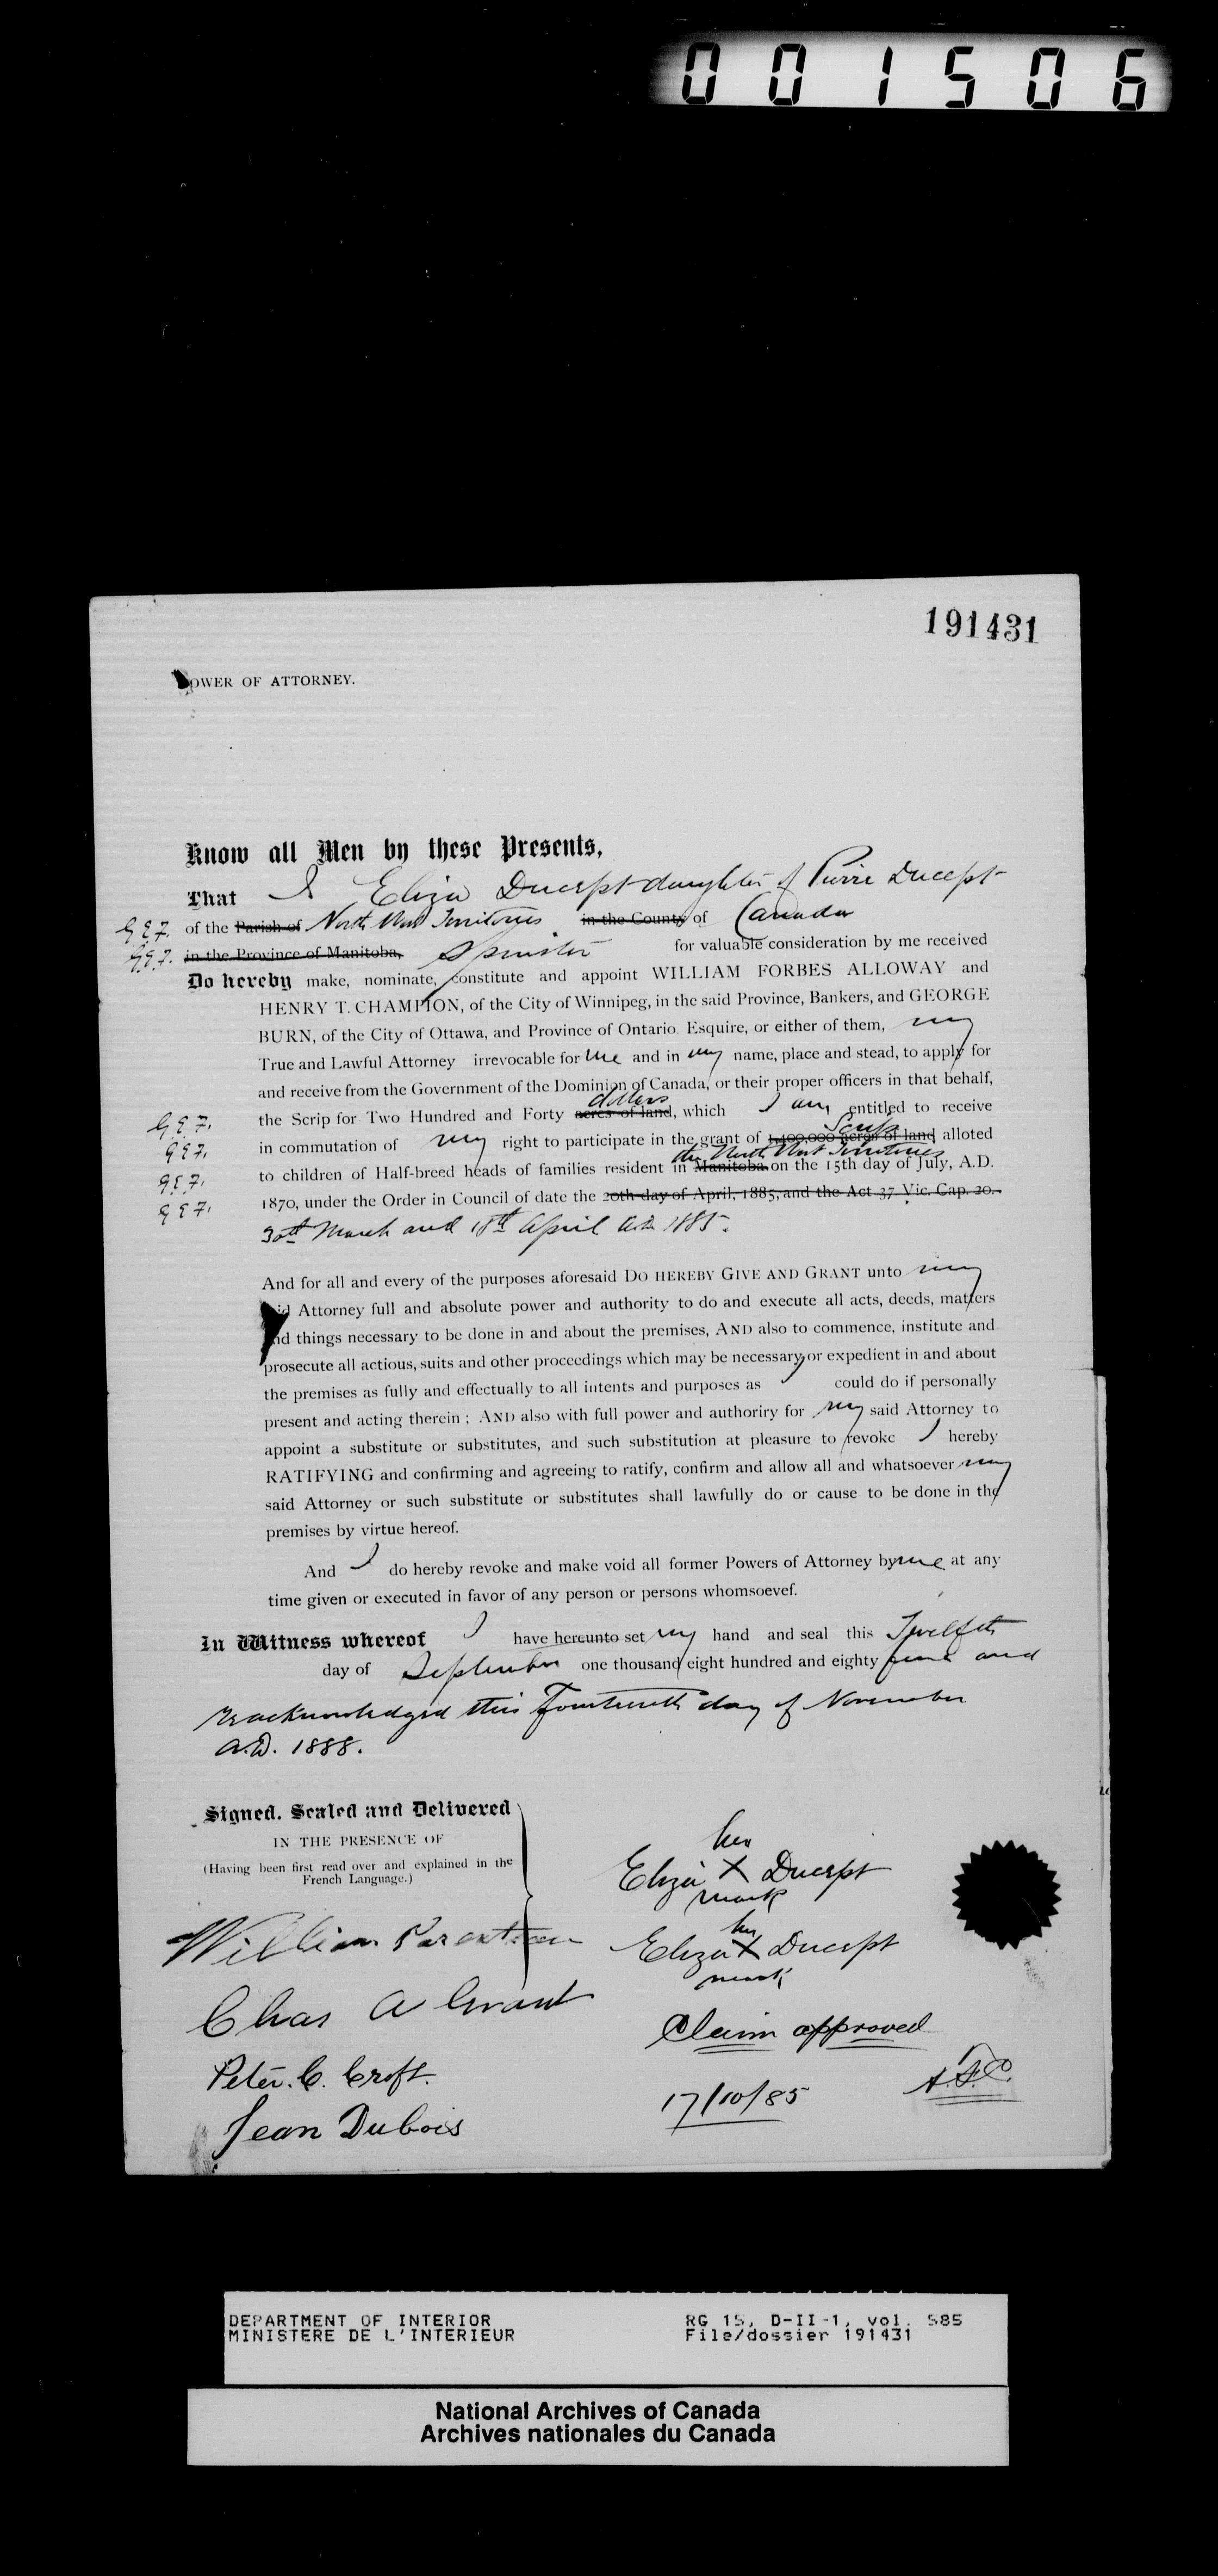 001506
191431
POWER OF ATTORNEY.
Know all Men by these Presents,
That I Eliza Ducept daughter of Pierre Ducept
G.E.F. of the Parish of North West Territories in the County of Canada
G.E.F. in the Province of Manitoba, Spinster for valuable consideration by me received
Do hereby make, nominate, constitute and appoint WILLIAM FORBES ALLOWAY and
HENRY T. CHAMPION, of the City of Winnipeg, in the said Province, Bankers, and GEORGE
BURN, of the City of Ottawa, and Province of Ontario. Esquire, or either of them, my
True and Lawful Attorney irrevocable for me and in my name, place and stead, to apply for
and receive from the Government of the Dominion of Canada, or their proper officers in that behalf,
dollars
G.E.F. the Scrip for Two Hundred and Forty acres of land, which I am entitled to receive
Scrip
G.E.F. in commutation of my right to participate in the grant of 1,400,000 acres of land alloted
the North West Territories
G.E.F. to children of Half-breed heads of families resident in Manitoba on the 15th day of July, A.D.
G.E.F. 1870, under the Order in Council of date the 20th day of April, 1885, and the Act 37 Vic. Cap. 20.
30th March and 18th April A.D. 1885.
And for all and every of the purposes aforesaid DO HEREBY GIVE AND GRANT unto my
said Attorney full and absolute power and authority to do and execute all acts, deeds, matters
and things necessary to be done in and about the premises, AND also to commence, institute and
prosecute all actious, suits and other proceedings which may be necessary or expedient in and about
the premises as fully and effectually to all intents and purposes as I could do if personally
present and acting therein ; AND also with full power and authoriry for my said Attorney to
appoint a substitute or substitutes, and such substitution at pleasure to revoke I hereby
RATIFYING and confirming and agreeing to ratify, confirm and allow all and whatsoever my
said Attorney or such substitute or substitutes shall lawfully do or cause to be done in the
premises by virtue hereof.
And I do hereby revoke and make void all former Powers of Attorney by me at any
time given or executed in favor of any person or persons whomsoever.
In Witness whereof I have hereunto set my hand and seal this Twelfth
day of September one thousand eight hundred and eighty five and
reacknowledged this Fourteenth day of November
A.D. 1888.
Signed, Sealed and Delivered
IN THE PRESENCE OF
(Having been first read over and explained in the
French Language.)
her
Eliza X Ducept
mark
William Parenteau
her
Eliza X Ducept
mark
Chas A Grant
Claim approved
Peter. C. Croft.
17/10/85
Jean Dubois
DEPARTMENT OF INTERIOR RG 15, D-II-1, vol. 585
MINISTERE DE L'INTERIEUR File/dossier 191431
National Archives of Canada
Archives nationales du Canada